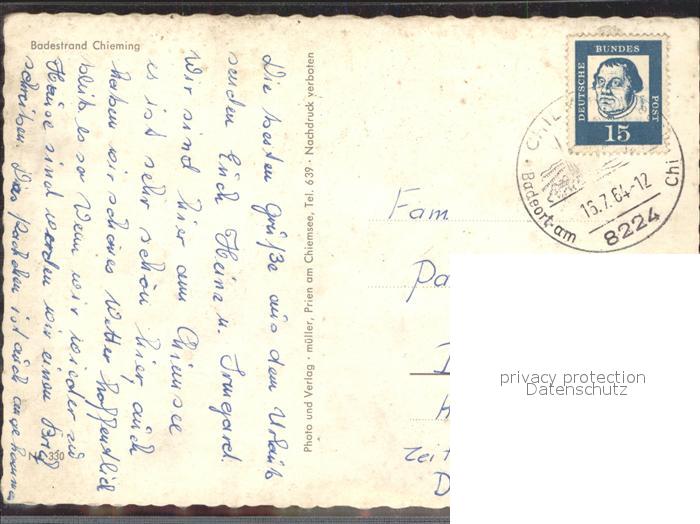 Badestrand Chieming
Die besten Grüße aus dem Urlaub
senden Euch Heinz u. Irmgard.
Wir sind hier am Chiemsee
es ist sehr schön hier, auch
haben wir schönes Wetter hoffentlich
bleibt es so. Wenn wir wieder zu
Hause sind werden wir einen Brief
schreiben. Das Päckchen ist auch angekommen
330
Photo und Verlag · müller, Prien am Chiemsee, Tel. 639 · Nachdruck verboten
DEUTSCHE
BUNDES
POST
15
Badeort am
Chi
16.7.64-12
8224
Fam
privacy protection
Datenschutz